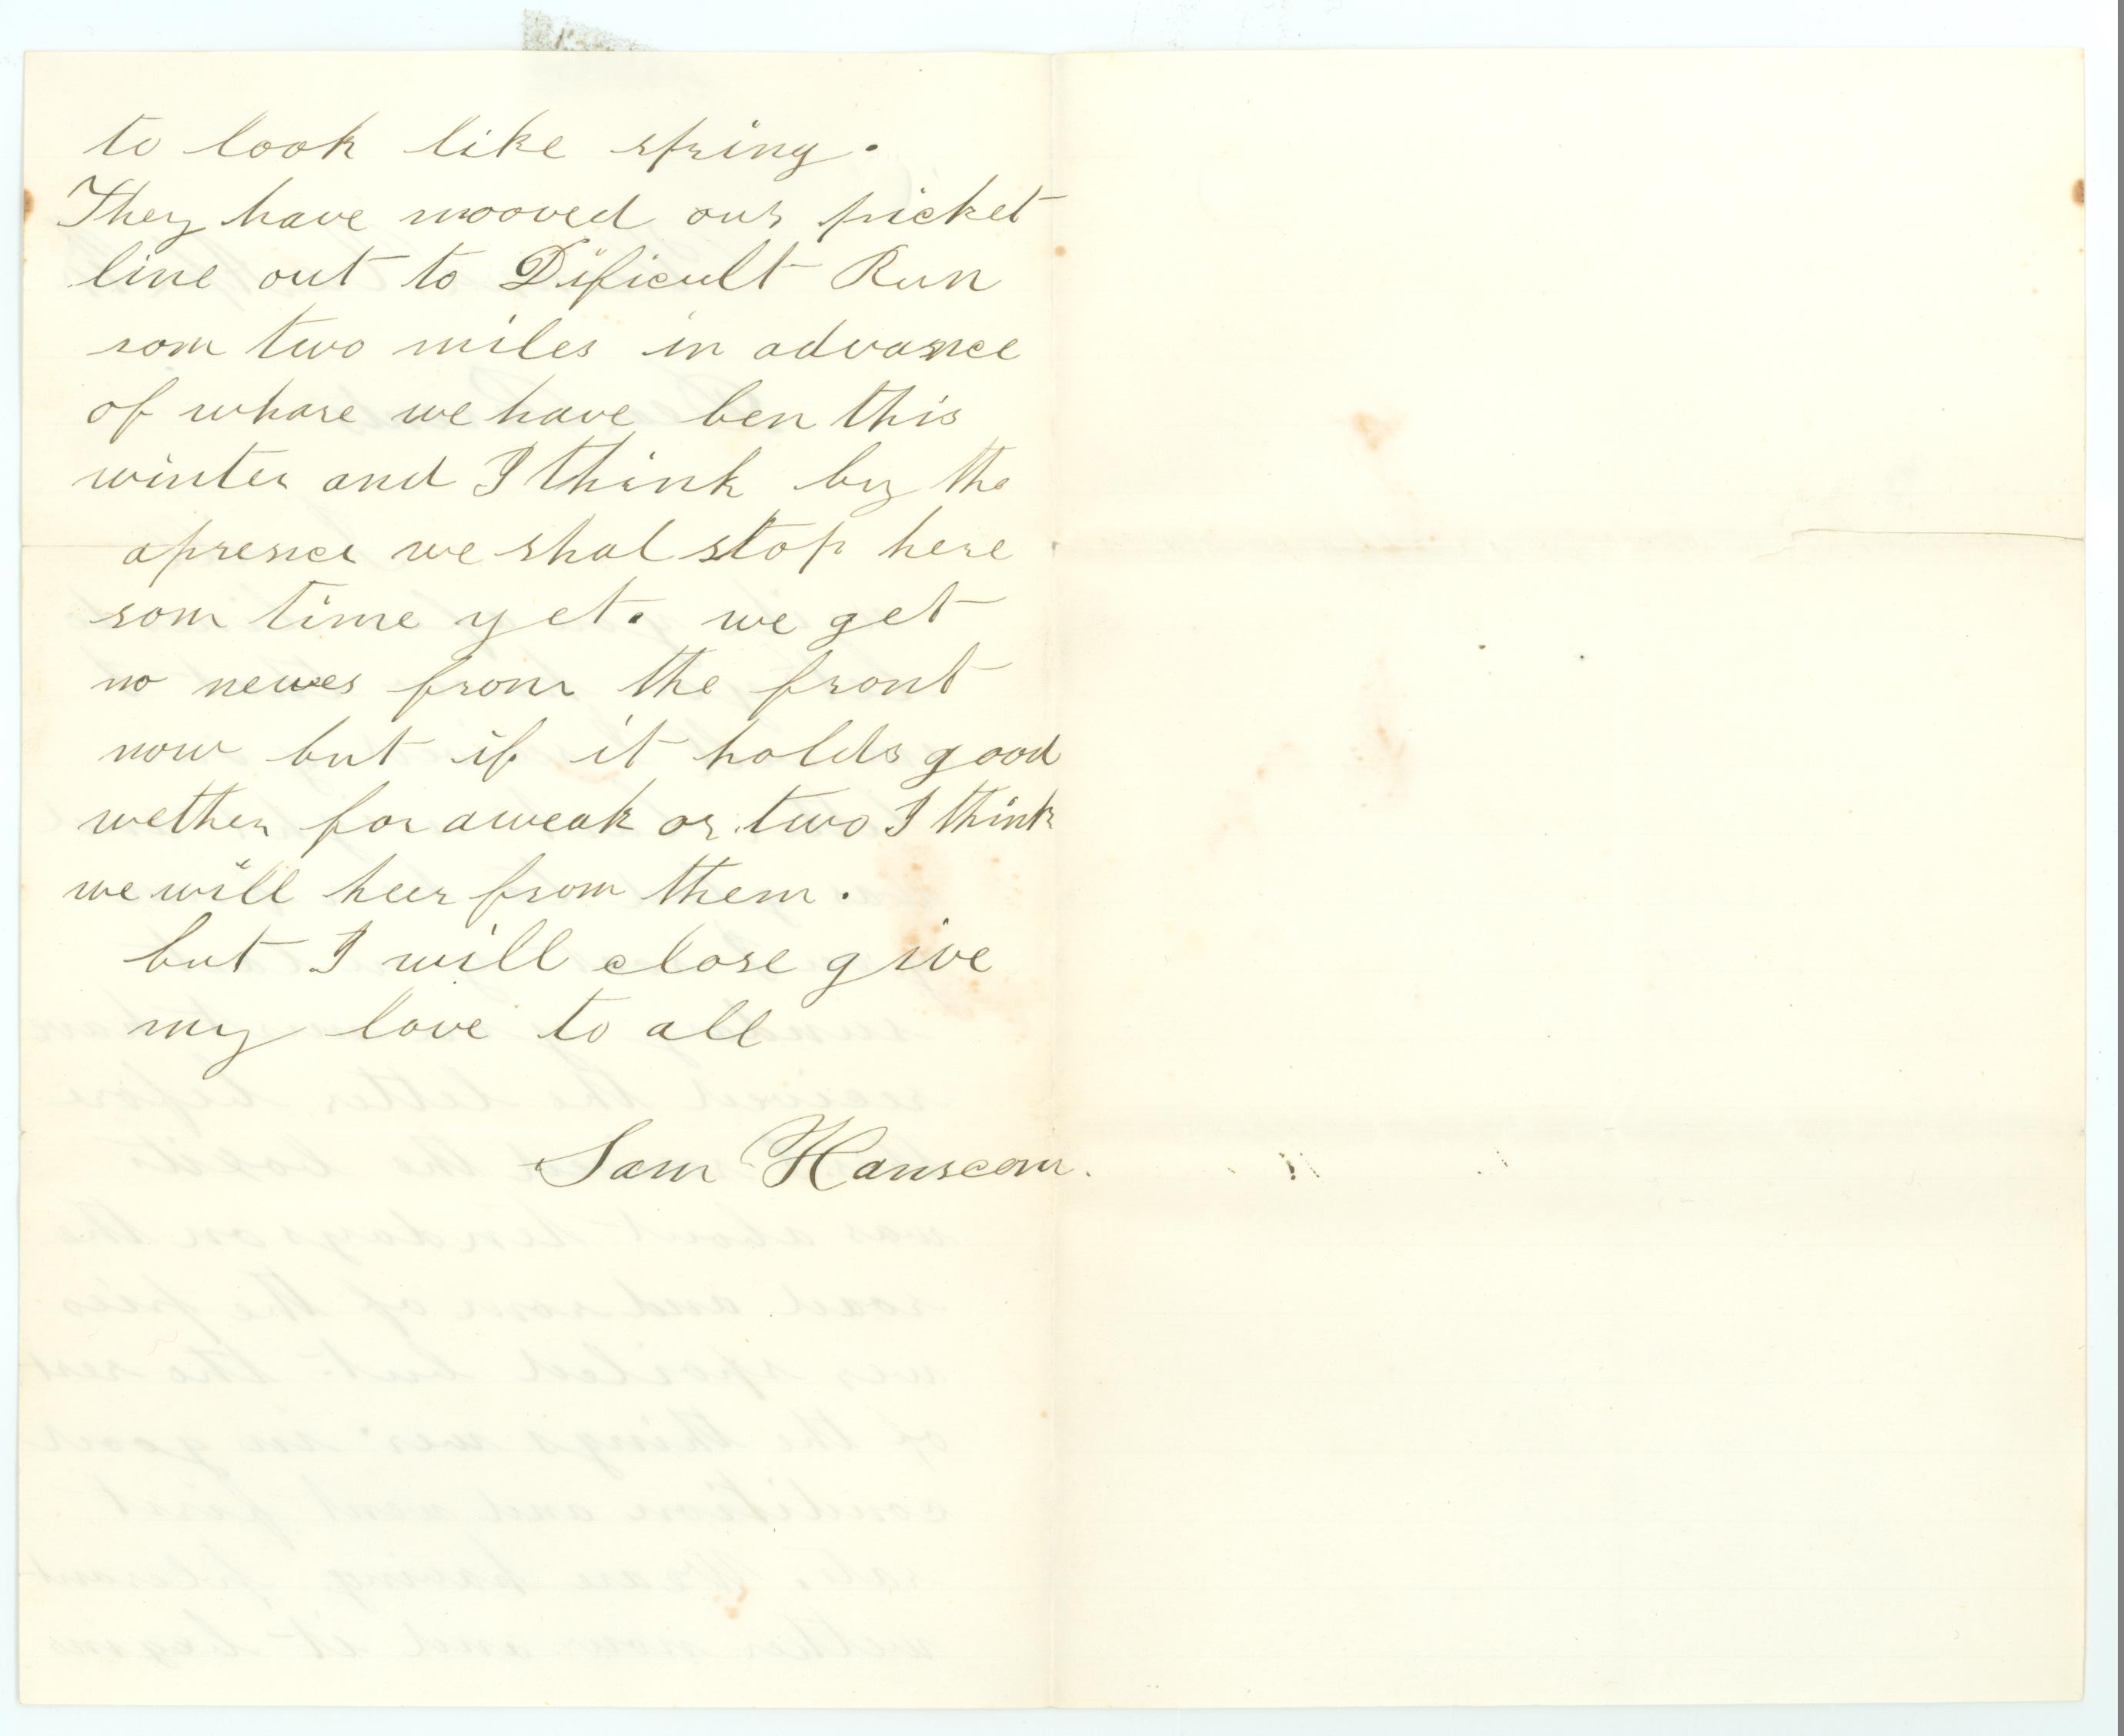 to look like spring.
They have mooved our picket
line out to Dificult Run
som two miles in advance
of whare we have ben this
winter and I think by the
apresnce we shal stop here
som time yet. we get
no newes from the front
now but if it holds good
wether for a weak or two I think
we will heer from them.
but I will close give
my love to all
Sam Hanscom.